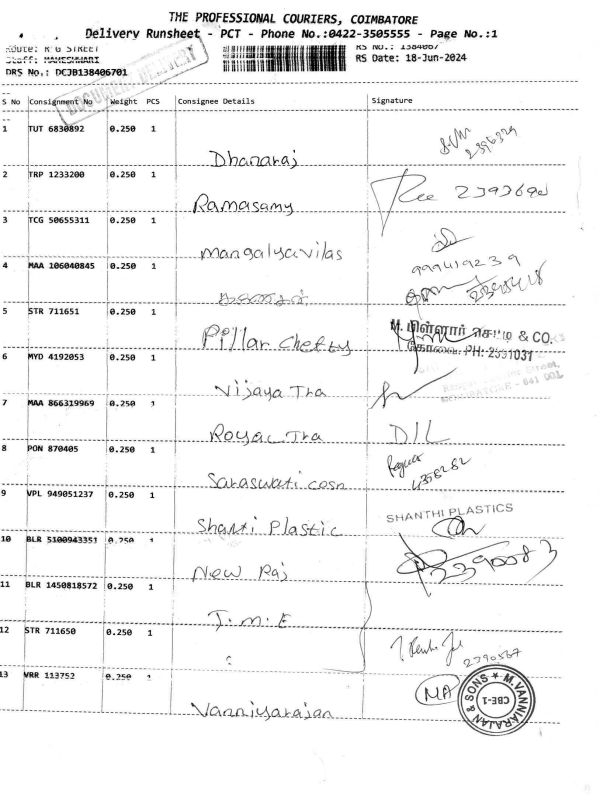 THE PROFESSIONAL COURIERS, COIMBATORE
Delivery Runsheet - PCT - Phone No.:0422-3505555 - Page No.:1
Route: R G STREET RS No.: 1384067
Staff: MAHESHWARI RS Date: 18-Jun-2024
DRS No.: DCJB138406701
DOCUMENT DELIVERY
S No Consignment No Weight PCS Consignee Details Signature
1 TUT 6830892 0.250 1 Dhanaraj
2396329
2 TRP 1233200 0.250 1 Ramasamy
3 TCG 50655311 0.250 1 Mangalyavilas
9994119239
4 MAA 106040845 0.250 1
5 STR 711651 0.250 1 Pillar Chetty
M. பிள்ளார் செட்டி & CO.
கோவை. PH: 2391031
6 MYD 4192053 0.250 1 Vijaya Tra
7 MAA 866319969 0.250 1 Royal Tra D/L
8 PON 870405 0.250 1 Saraswati cosn
4358282
9 VPL 949051237 0.250 1 Shanti Plastic
SHANTHI PLASTICS
10 BLR 5100943351 0.250 1 New Raj
2390083
11 BLR 1450818572 0.250 1 J.M.E
12 STR 711650 0.250 1
2390587
13 VRR 113752 0.250 1 Vanniyarajan
MA
M. VANNIARAJAN & SONS
CBE-1